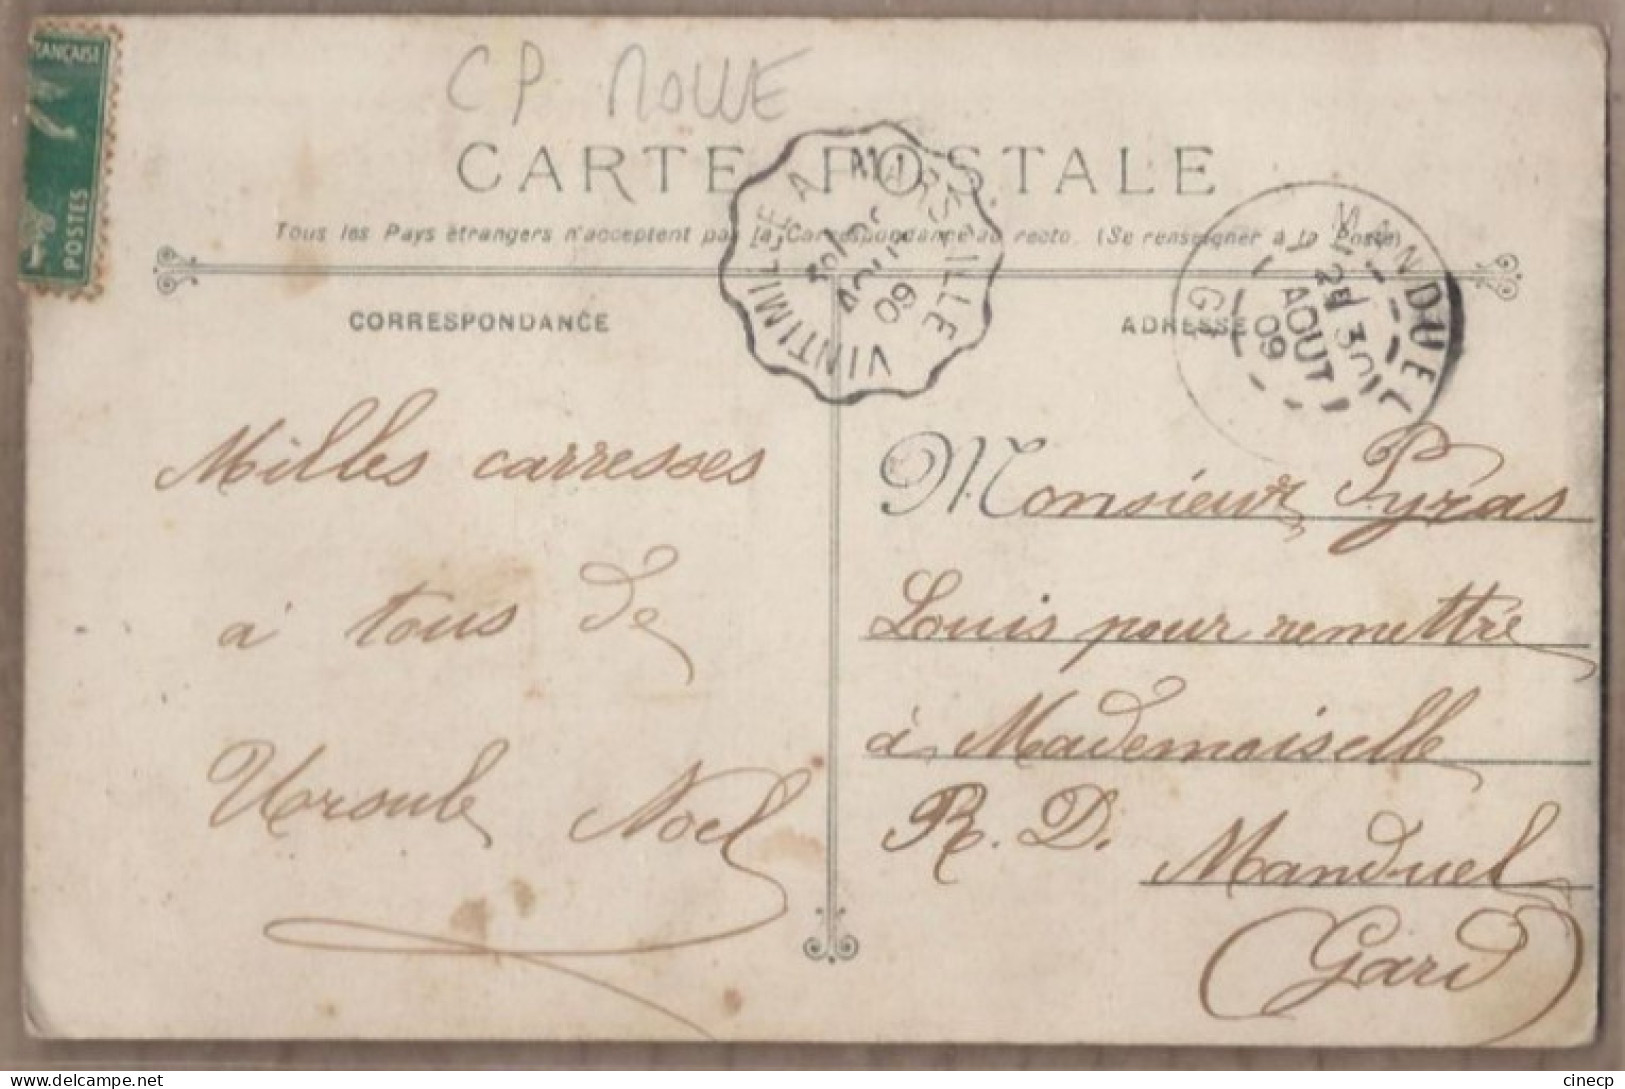 CP MOLLE
FRANÇAISE
POSTES
CARTE POSTALE
Tous les Pays étrangers n'acceptent pas la Correspondance au recto. (Se renseigner à la Poste)
VINTIMILLE A MARSEILLE
AOUT
09
MANDUEL
G
25
AOUT
09
CORRESPONDANCE
ADRESSE
Milles carresses
à tous de
Ursule Noel
Monsieur Pyras
Louis pour remettre
à Mademoiselle
R. D. Manduel
(Gard)
cinecp